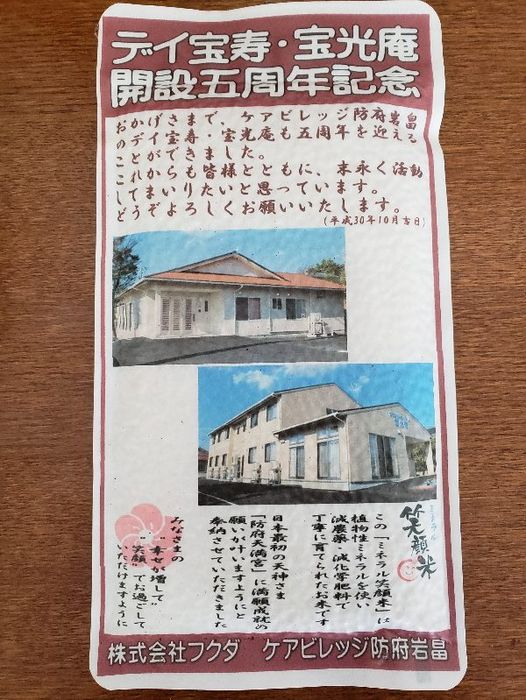 デイ宝寿・宝光庵
開設五周年記念
おかげさまで、ケアビレッジ防府岩畠
のデイ宝寿・宝光庵も五周年を迎える
ことができました。
これからも皆様とともに、末永く活動
してまいりたいと思っています。
どうぞよろしくお願いいたします。
(平成30年10月吉日)
ミネラル
笑顔米
この「ミネラル笑顔米」は
植物性ミネラルを使い
減農薬・減化学肥料で
丁寧に育てられたお米です
日本最初の天神さま
「防府天満宮」に満願成就の
願いが叶いますようにと
奉納させていただきました
みなさまの
"幸せが増して"
"笑顔"でお過ごして
いただけますように
株式会社フクダ ケアビレッジ防府岩畠